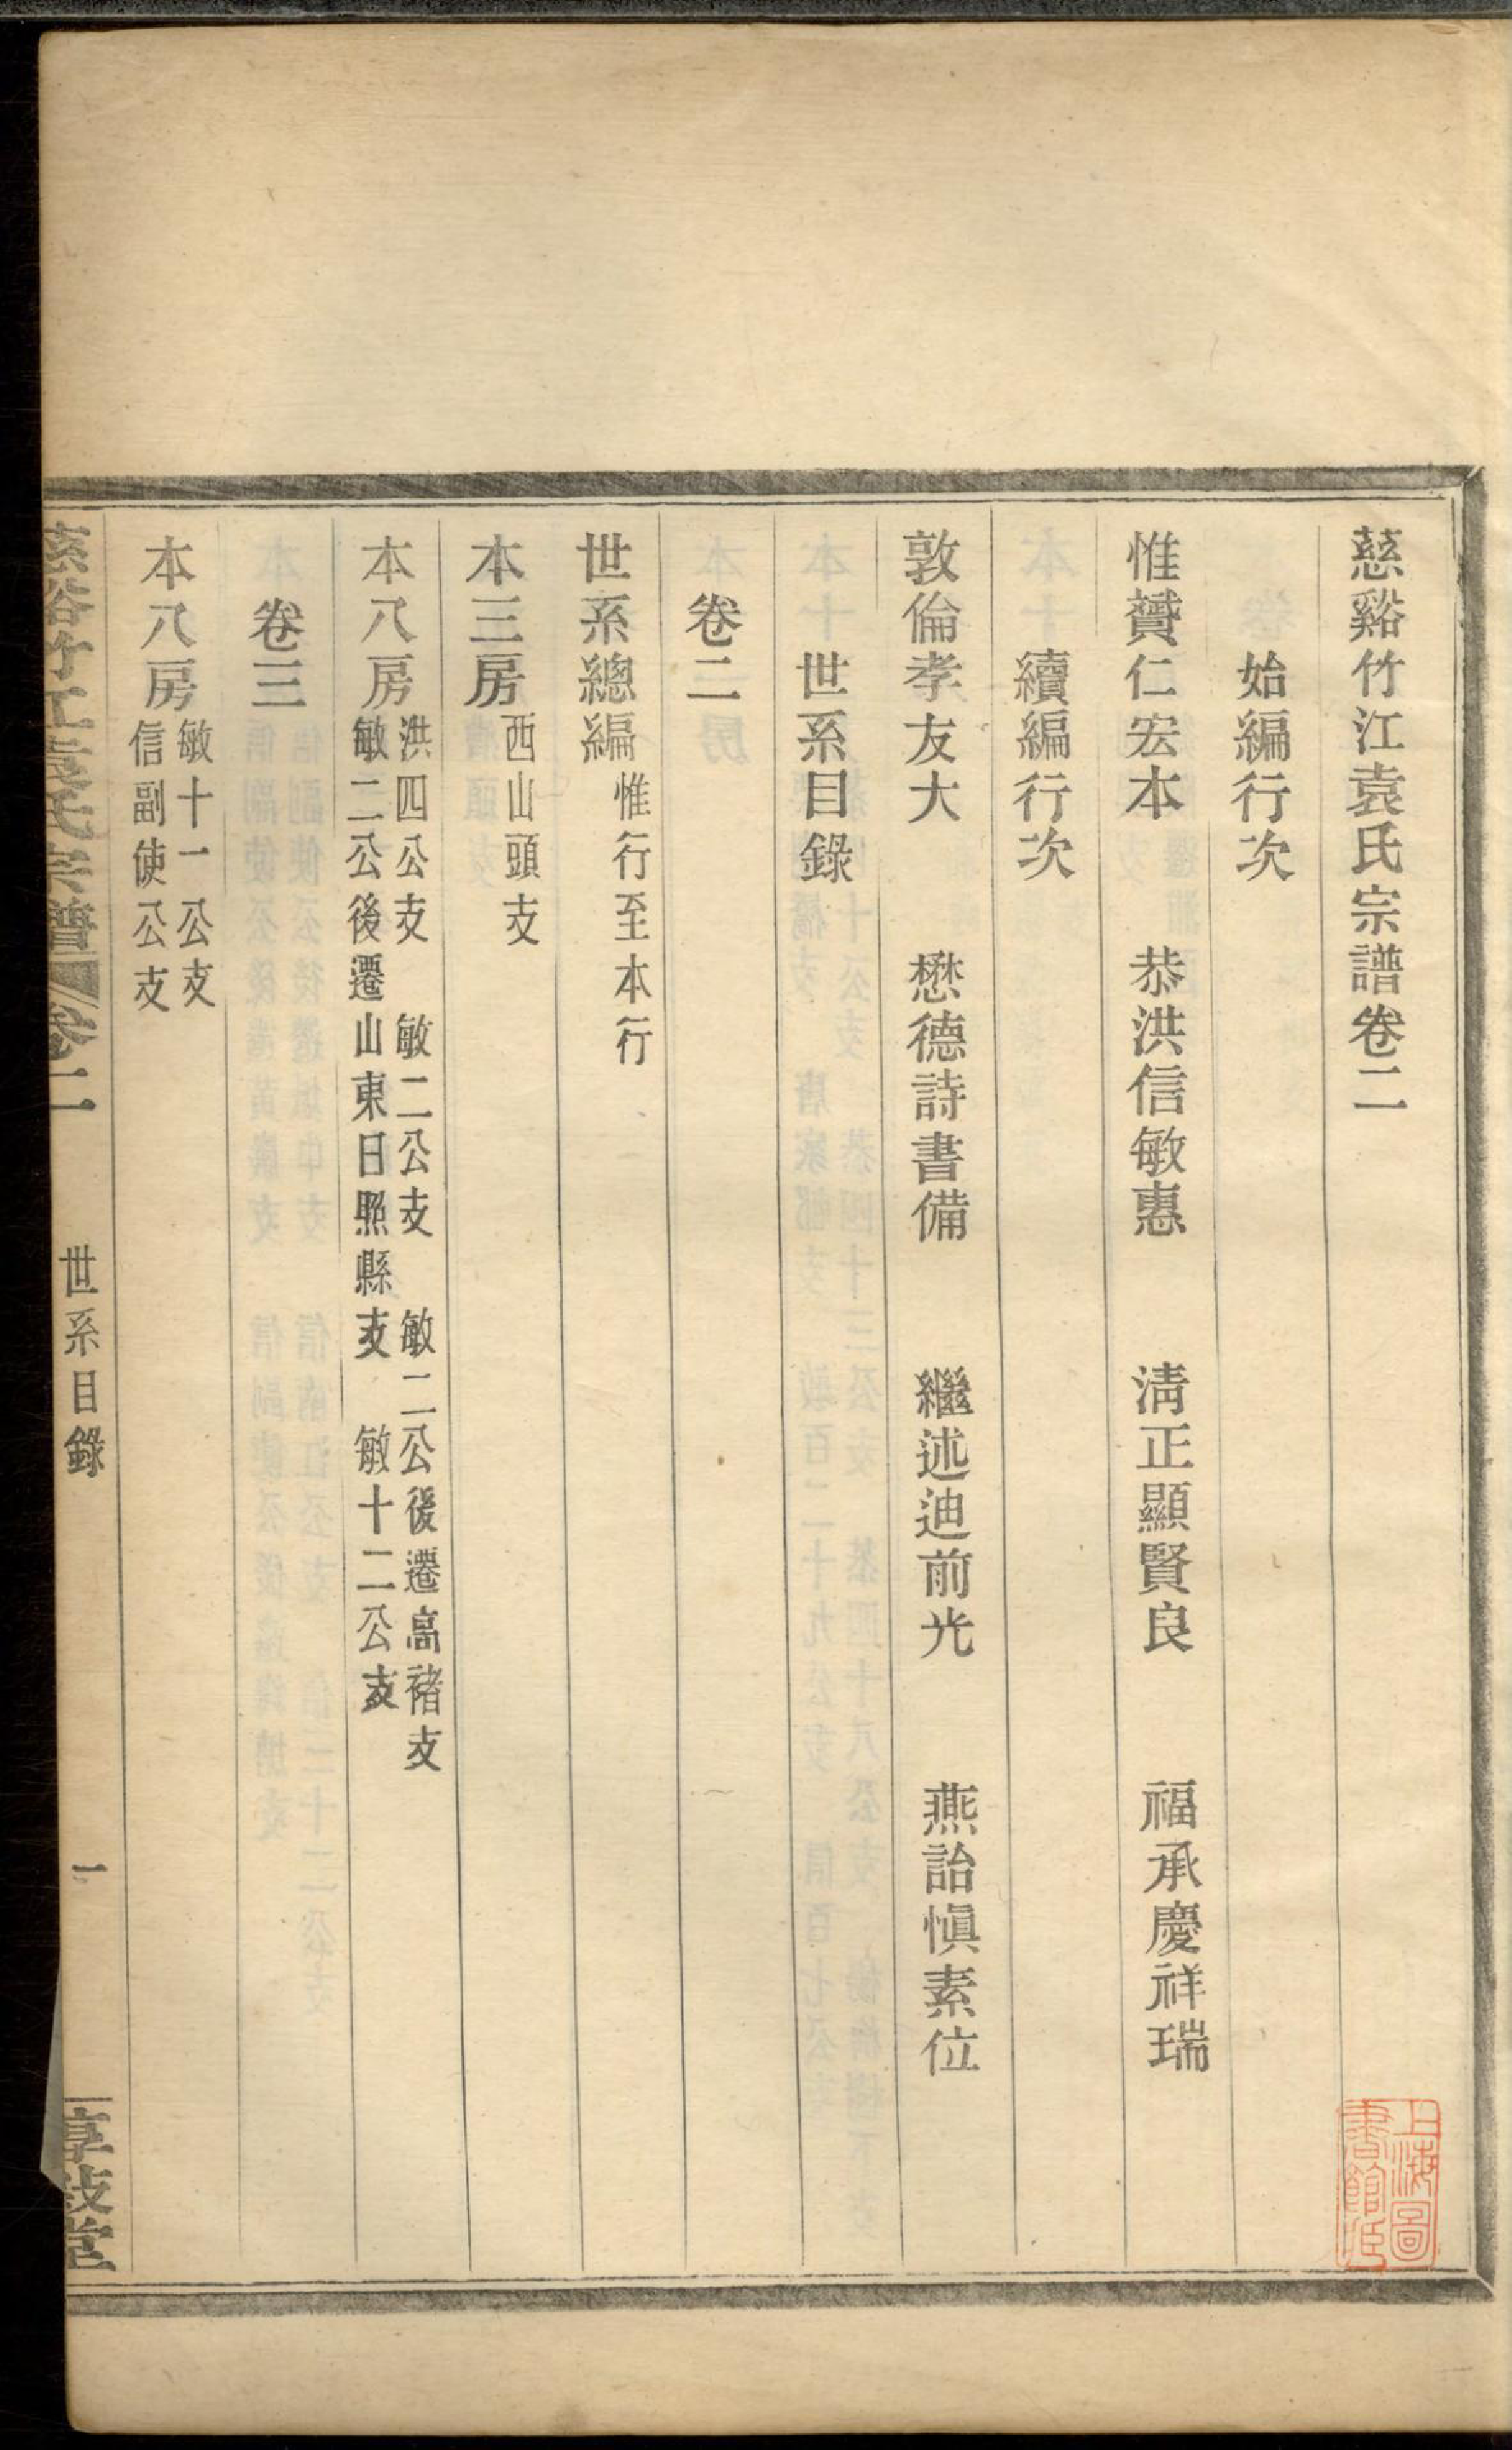 慈谿竹江袁氏宗譜卷二
始編行次
惟贇仁宏本　恭洪信敏惠　清正顯賢良　福承慶祥瑞
續編行次
敦倫孝友大　懋德詩書備　繼述迪前光　燕詒愼素位
世系目錄
卷二
世系總編　惟行至本行
本三房　西山頭支
本八房　洪四公支　敏二公支　敏二公後遷高褚支
敏二公後遷山東日照縣支　敏十二公支
卷三
本八房　敏十一公支
信副使公支
慈谿竹江袁氏宗譜　卷二　世系目錄　一
上海圖
書館臧